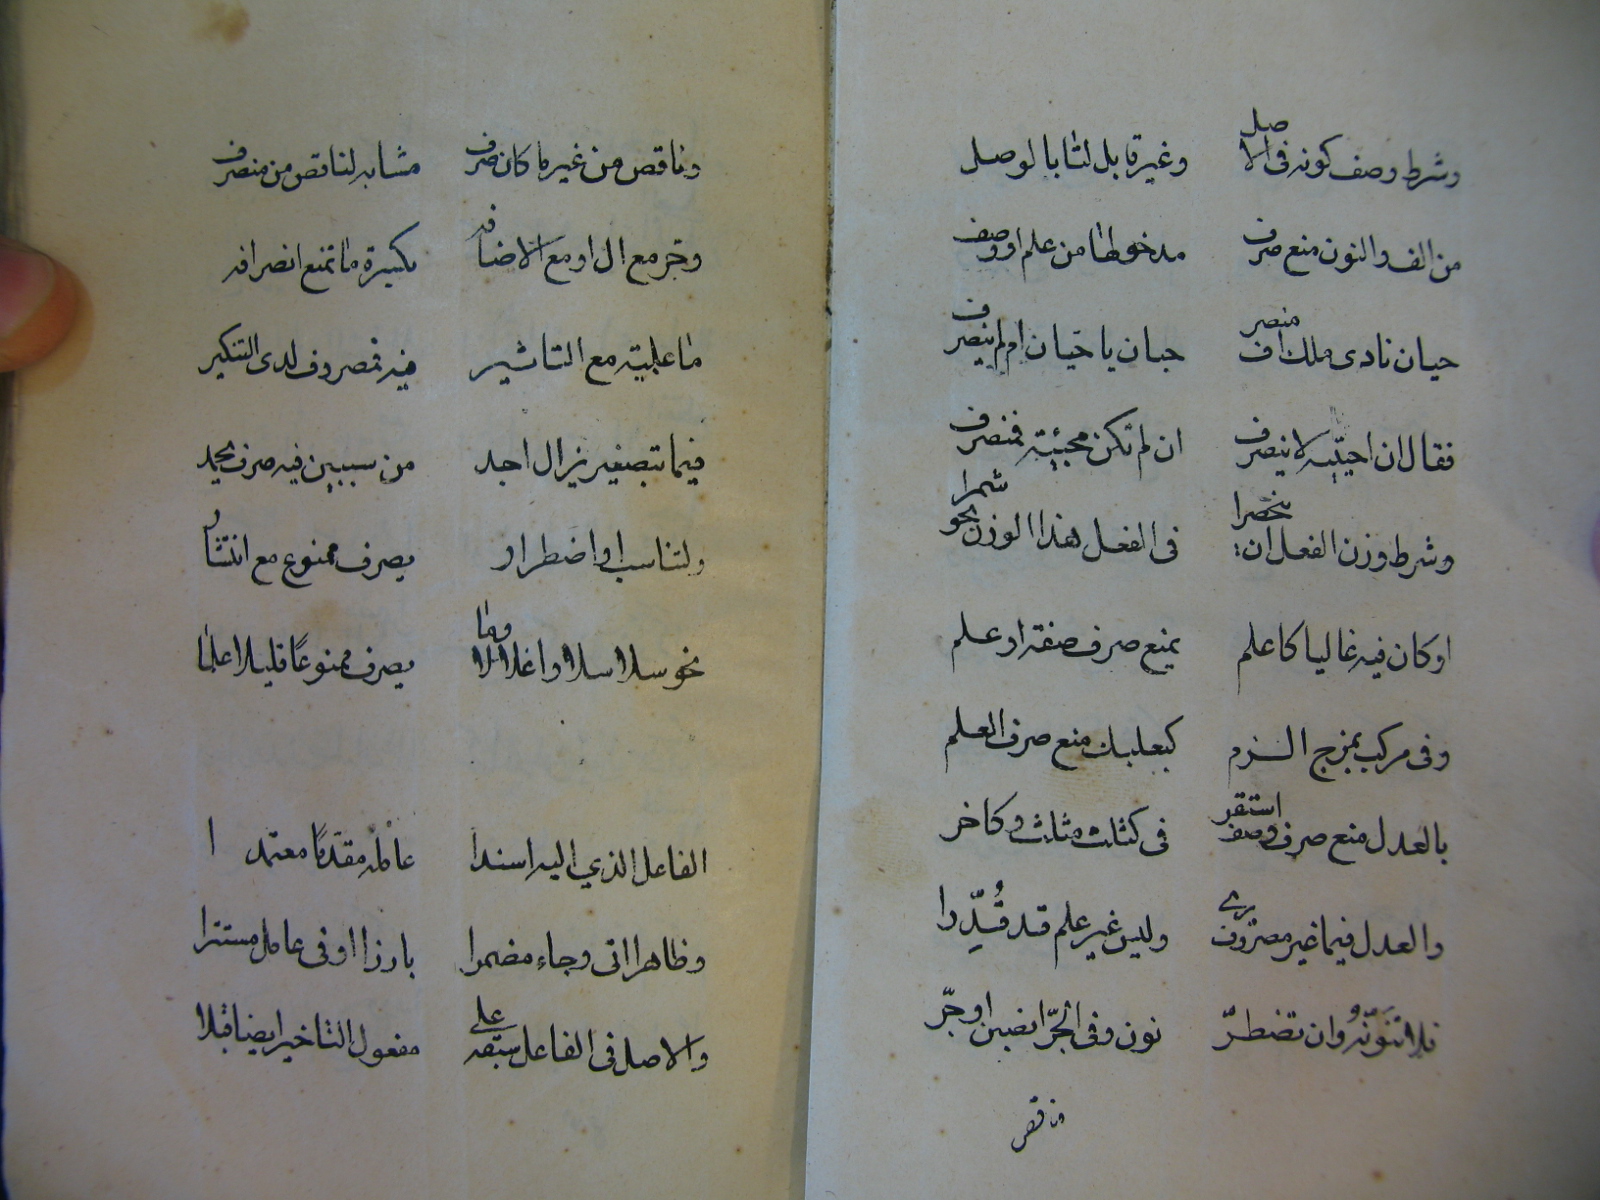 وشرط وصف كونه فى الاصل وغير قابل لتا بالوصل
من الف والنون منع صرف مدخولها من علم او وصف
حيان نادى ملك منصرف حيان يا حيان ام لم ينصرف
فقال ان احييته لا ينصرف ان لم تكن محييه فمنصرف
وشرط وزن الفعل ان ينحصرا فى الفعل هذا الوزن نحو شمرا
او كان فيه غالبا كاعلم يمنع صرف صفة او علم
وفى مركب بمزج الزم كبعلبك منع صرف العلم
بالعدل منع صرف وصف استقر فى كثلث مثلث وكاخر
والعدل فيما غير مصروف يرى وليس غير علم قد قُدِّرا
فلا تنونه وان تضطرّ نون وفى الجرّ انصبن او جرّ
وناقص
وناقص من غير ما كان صرف مشابه لناقص من منصرف
وجر مع ال او مع الاضافه بكسرة ما تمنع انصرافه
ما علميته مع التاثير فيه فمصروف لدى التنكير
فيما بتصغير يزال احد من سببين فيه صرف يحمد
ولتناسب او اضطرار يصرف ممنوع مع انتشار
نحو سلاسلا واغلالا وما يصرف ممنوعًا قليلا علما
الفاعل الذي اليه اسندا عامله مقدمًا معتمدا
وظاهرا اتى وجاء مضمرا بارزا او فى عامل مستترا
والاصل فى الفاعل سبقه على مفعول التاخير ايضا قبلا